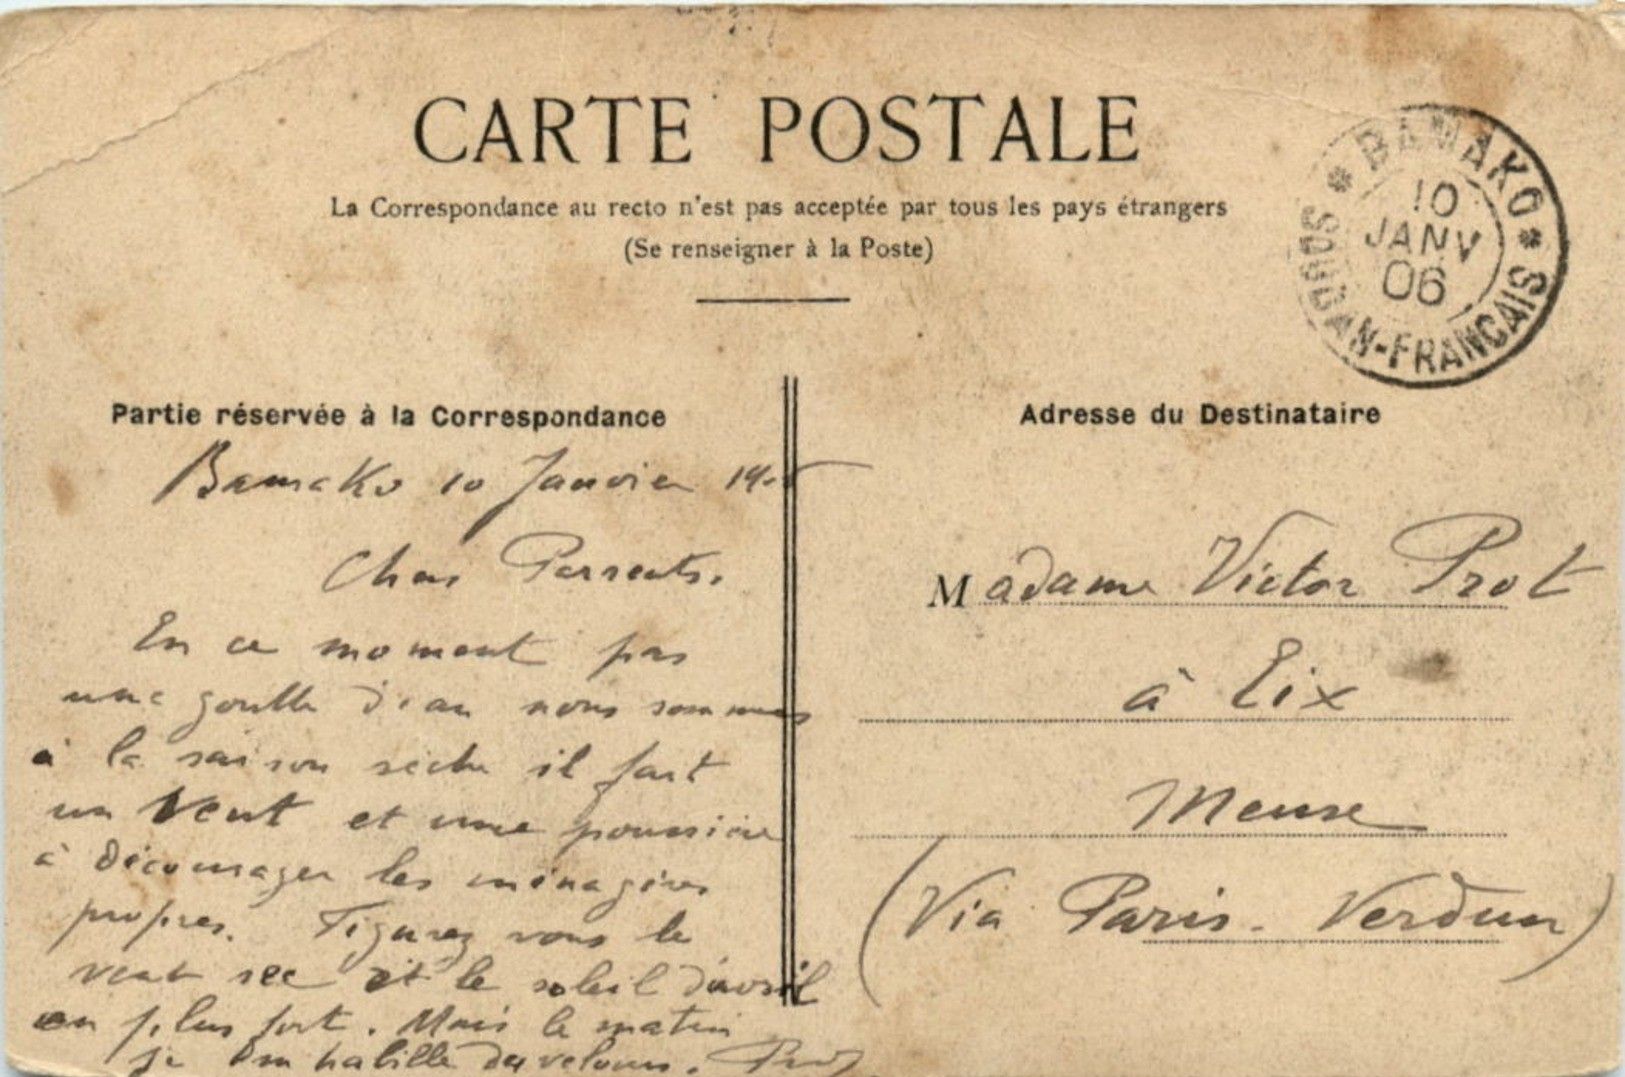 CARTE POSTALE
La Correspondance au recto n'est pas acceptée par tous les pays étrangers
(Se renseigner à la Poste)
BAMAKO
10
JANV
06
SOUDAN-FRANCAIS
Partie réservée à la Correspondance
Bamako 10 Janvier
Chers Parrents.
En ce moment pas
une goutte d'eau nous sommes
à la saison sèche il fait
un vent et une poussière
à décourager les ménagères
propres. Figurez vous le
vent sec et le soleil d'avril
en plus fort. Mais le matin
je m'habille de velours. Prot
Adresse du Destinataire
Madame Victor Prot
à Eix
Meuse
(Via Paris. Verdun)